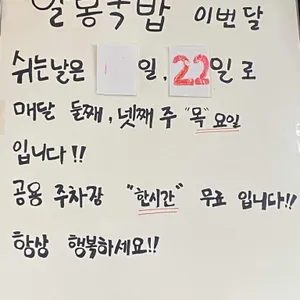 일봉국밥 이번달
쉬는날은 일, 22일로
매달 둘째, 넷째 주 "목"요일
입니다!!
공용 주차장 "한시간" 무료 입니다!!
항상 행복하세요!!